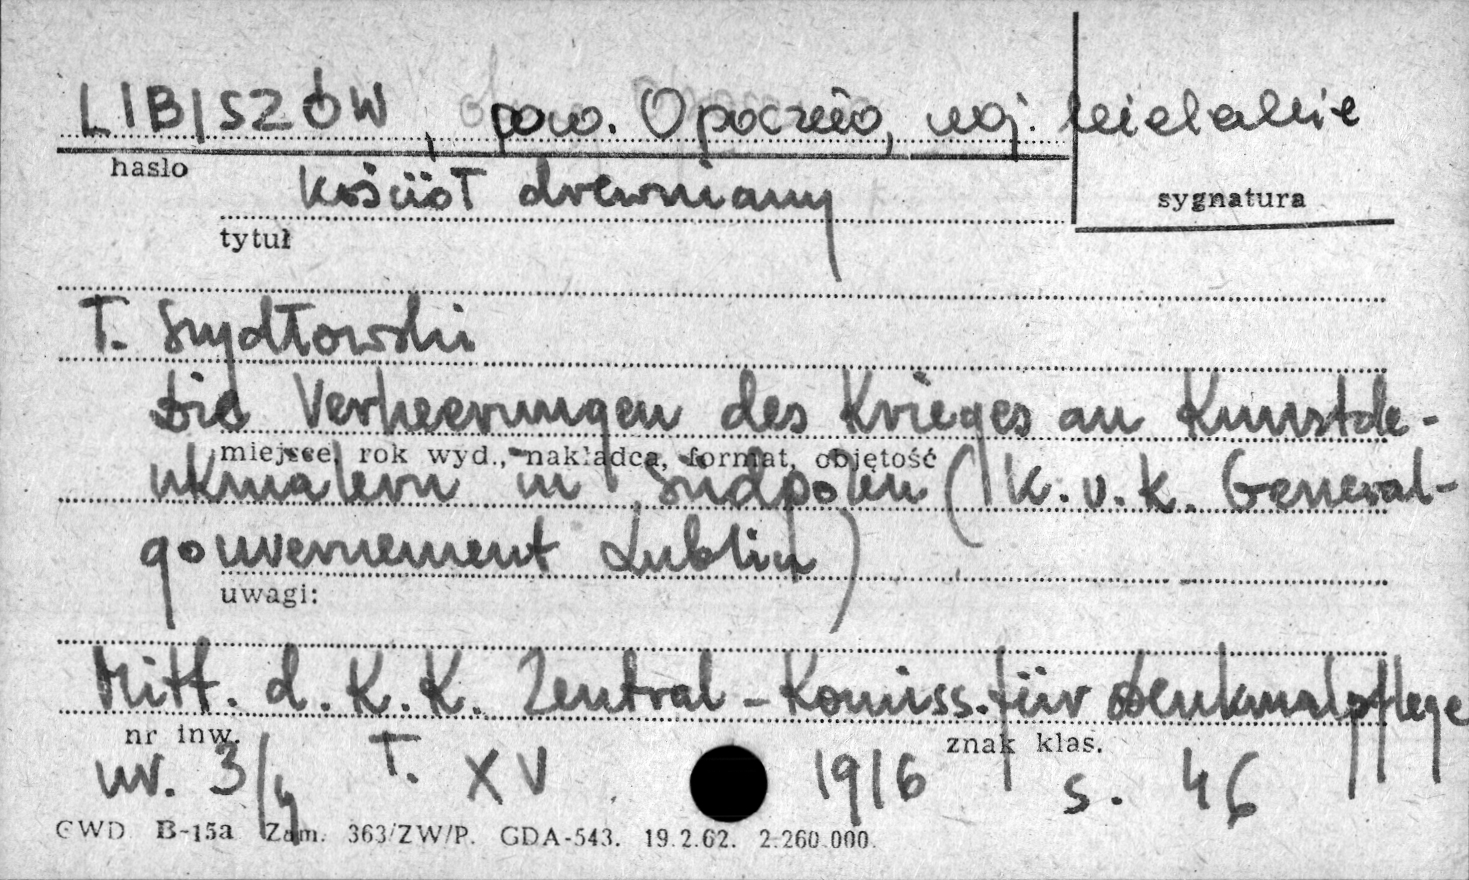 LIBISZÓW, pow. Opoczno, woj. kieleckie
hasło
kościół drewniany
sygnatura
tytuł
T. Szydłowski
Die Verheerungen des Krieges an Kunstde-
miejsce, rok wyd., nakładca, format, objętość
nkmalern in Südpolen (K.u.K. General-
gouvernement Lublin)
uwagi:
Mitt. d. K.K. Zentral-Komiss. für Denkmalpflege
nr inw.
znak klas.
nr. 3/4 T. XV 1916 s. 46
CWD B-15a Zam. 363/ZW/P. GDA-543. 19.2.62. 2.260.000.